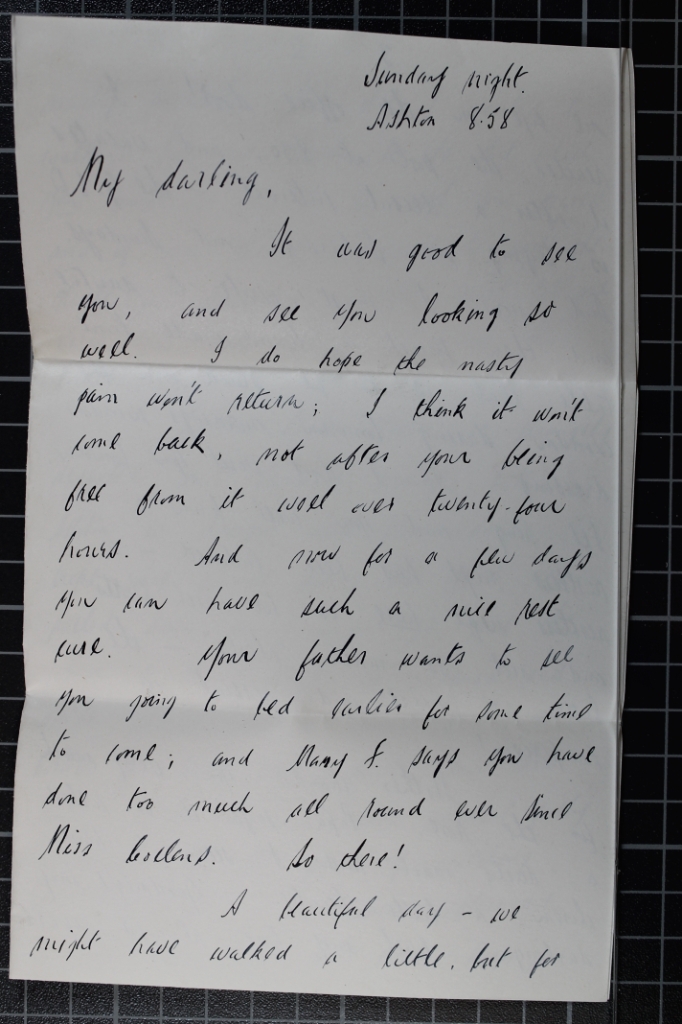 Sunday night.
Ashton 8.58
My darling,
It was good to see
you, and see you looking so
well. I do hope the nasty
pain won't return; I think it won't
come back, not after your being
free from it well over twenty-four
hours. And now for a few days
you can have such a nice rest
cure. Your father wants to see
you going to bed earlier for some time
to come; and Mary F. says you have
done too much all round ever since
Miss So there!
A beautiful day - we
might have walked a little, but for